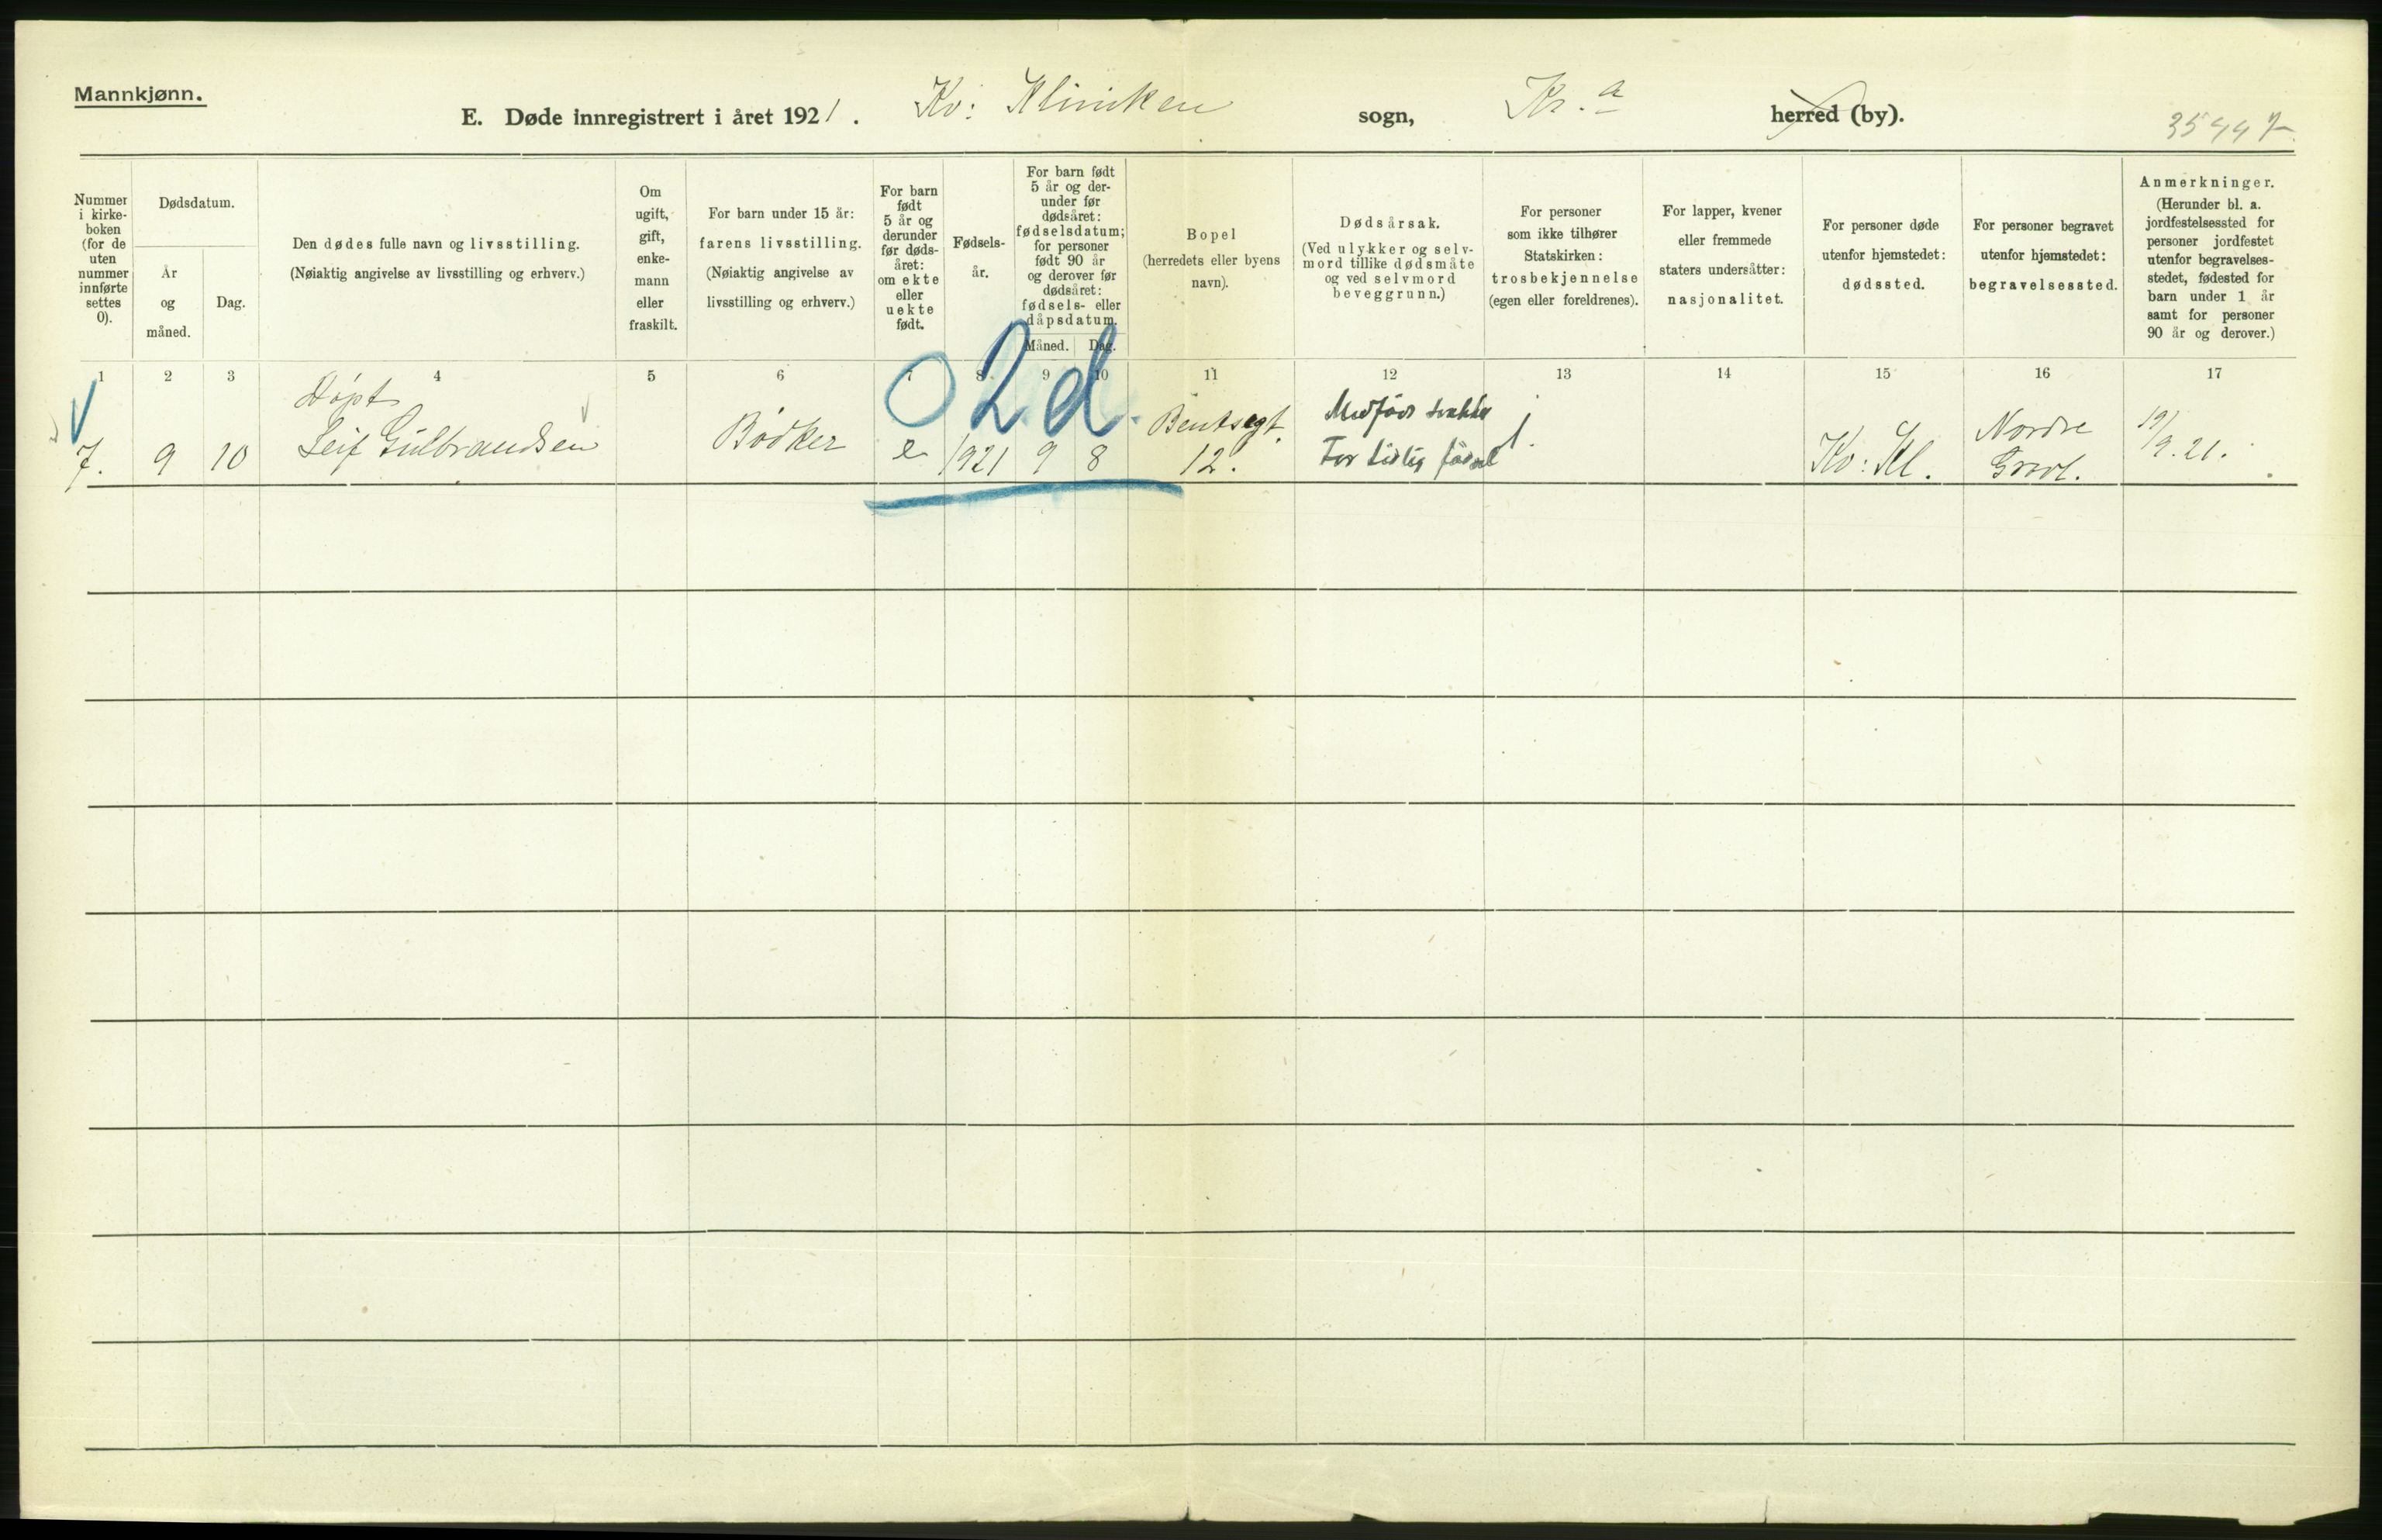 Mannkjønn.
E. Døde innregistrert i året 1921. Kv: Kliniken sogn, Kr.a herred (by).
35447
Nummer i kirke-boken (for de uten nummer innførte settes 0).
Dødsdatum.
År og måned.
Dag.
Den dødes fulle navn og livsstilling.
(Nøiaktig angivelse av livsstilling og erhverv.)
Om ugift, gift, enke-mann eller fraskilt.
For barn under 15 år:
farens livsstilling.
(Nøiaktig angivelse av livsstilling og erhverv.)
For barn født 5 år og derunder før døds-året: om ekte eller uekte født.
Fødsels-år.
For barn født 5 år og der-under før dødsåret: fødselsdatum; for personer født 90 år og derover før dødsåret: fødsels- eller dåpsdatum.
Måned. Dag.
Bopel
(herredets eller byens navn).
Dødsårsak.
(Ved ulykker og selv-mord tillike dødsmåte og ved selvmord beveggrunn.)
For personer som ikke tilhører Statskirken: trosbekjennelse (egen eller foreldrenes).
For lapper, kvener eller fremmede staters undersåtter: nasjonalitet.
For personer døde utenfor hjemstedet: dødssted.
For personer begravet utenfor hjemstedet: begravelsessted.
Anmerkninger.
(Herunder bl. a. jordfestelsessted for personer jordfestet utenfor begravelses-stedet, fødested for barn under 1 år samt for personer 90 år og derover.)
1 2 3 4 5 6 7 8 9 10 11 12 13 14 15 16 17
0 2 d.
Døpt
7. 9 10 Leif Gulbrandsen Bødker e 1921 9 8
Bentsegt. 12.
Medfødt svakhet
For tidlig fødsel
Kv: Kl.
Nordre Gravl.
19/9.21.